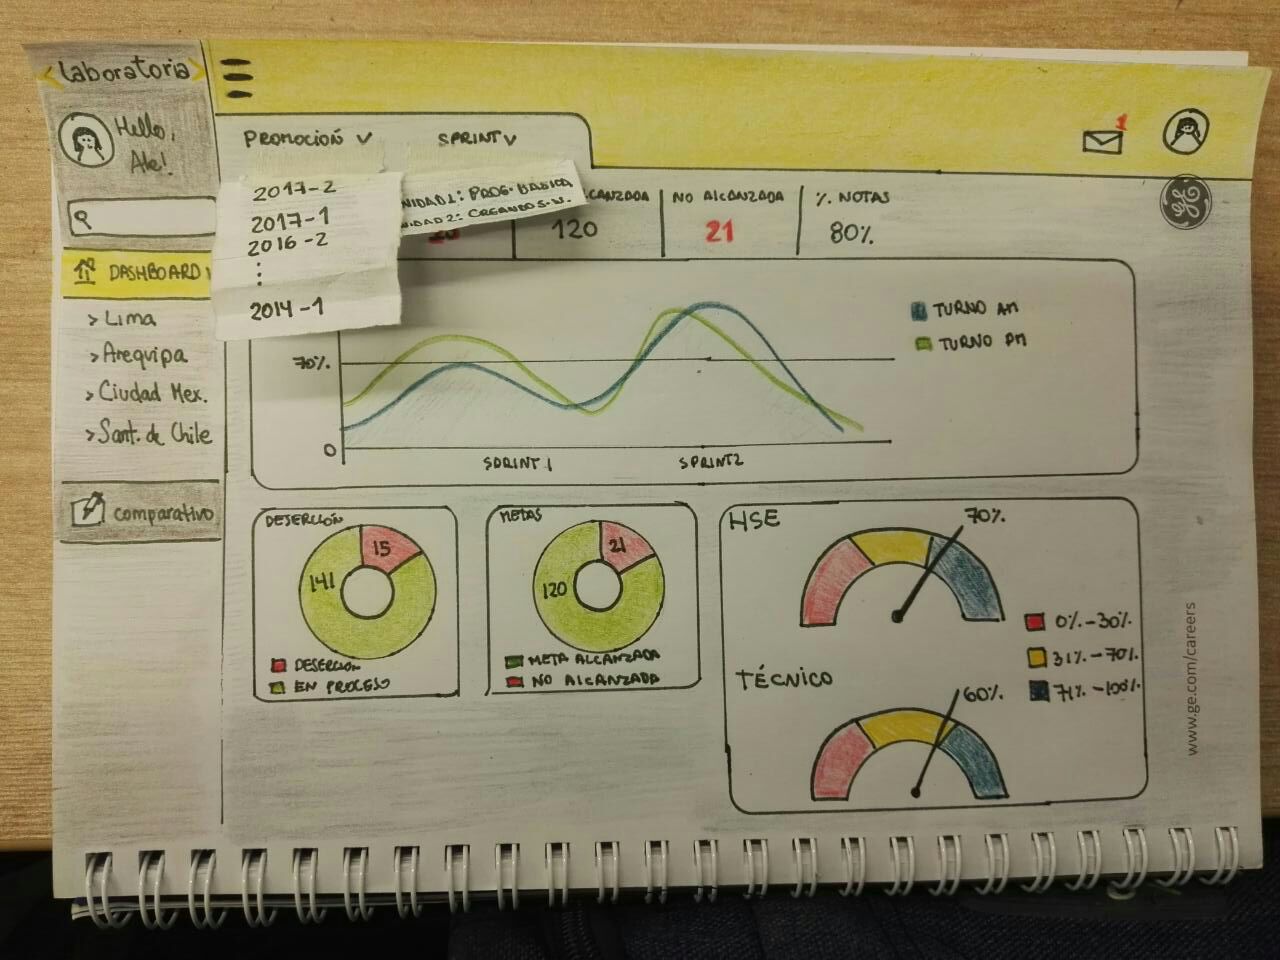 <Laboratoria>
Hello,
Ale!
DASHBOARD
> Lima
> Arequipa
> Ciudad Mex.
> Sant. de Chile
comparativo
PROMOCION V
SPRINT V
1
2017-2
2017-1
2016-2
2014-1
NIDAD 1: PROG. BÁSICA
IDAD 2: CREANDO S.W.
CANZADA
120
NO ALCANZADA
21
% NOTAS
80%
GE
70%.
0
SPRINT 1
SPRINT2
TURNO AM
TURNO PM
DESERCIÓN
15
141
DESERCION
EN PROCESO
METAS
21
120
META ALCANZADA
NO ALCANZADA
HSE
70%.
TÉCNICO
60%.
0%-30%
31%-70%
71%-100%
www.ge.com/careers